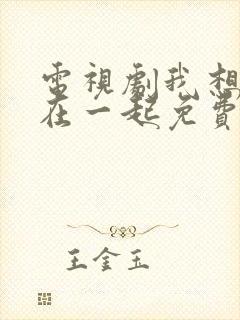 電視劇我想
在一起免費
王金玉